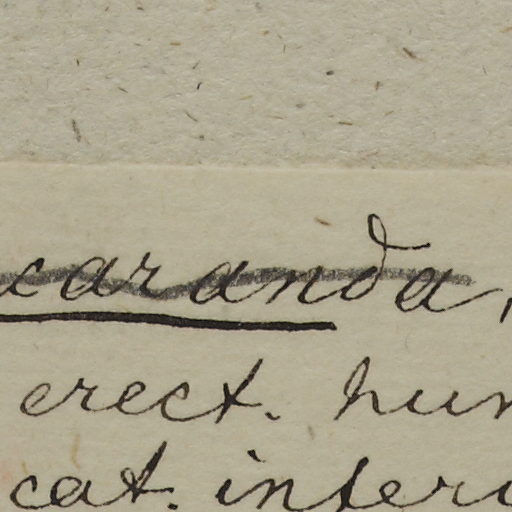 caranda,
erect. hum
cat. inferi